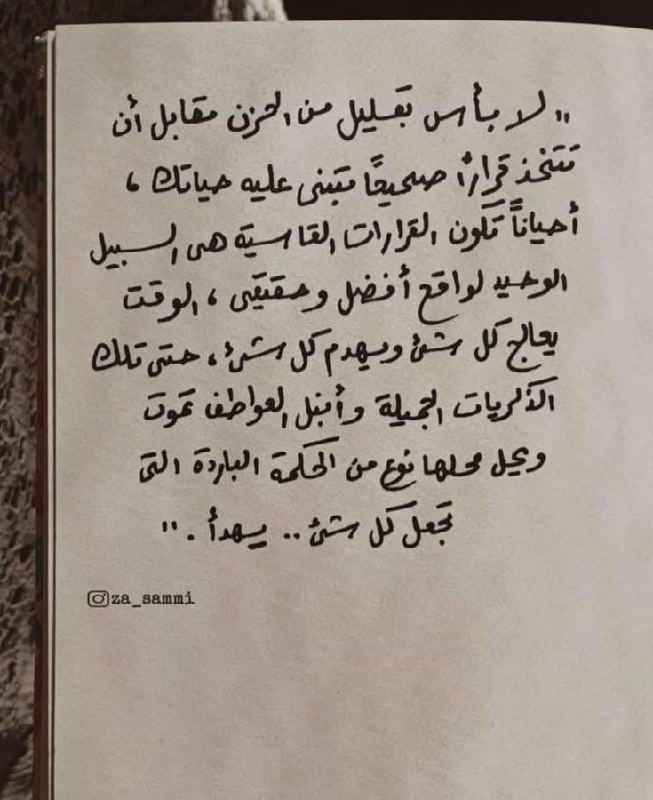 " لا بأس بقليل من الحزن مقابل أن
تتخذ قراراً صحيحاً تبنى عليه حياتك ،
أحياناً تكون القرارات القاسية هى السبيل
الوحيد لواقع أفضل وحقيقى ، الوقت
يعالج كل شئ ويهدم كل شئ ، حتى تلك
الذكريات الجميلة وأنبل العواطف تموت
ويحل محلها نوع من الحكمة الباردة التى
تجعل كل شئ .. يهدأ . "
za_sammi